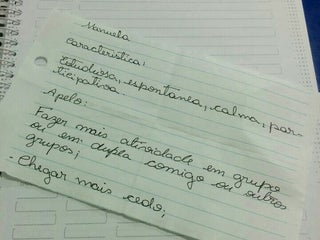 Manuela
Característica:
Estudiosa, espontânea, calma, par-
ticipativa.
Apelo:
Fazer mais atividade em grupo
ou em dupla comigo ou outros
grupos;
- Chegar mais cedo;